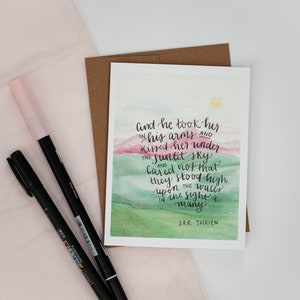 and he took her
in his arms AND
kissed her under
THE sunlit sky
AND
cared not that
they stood high
upon THE walls
IN THE sight of
many.
J.R.R. TOLKIEN